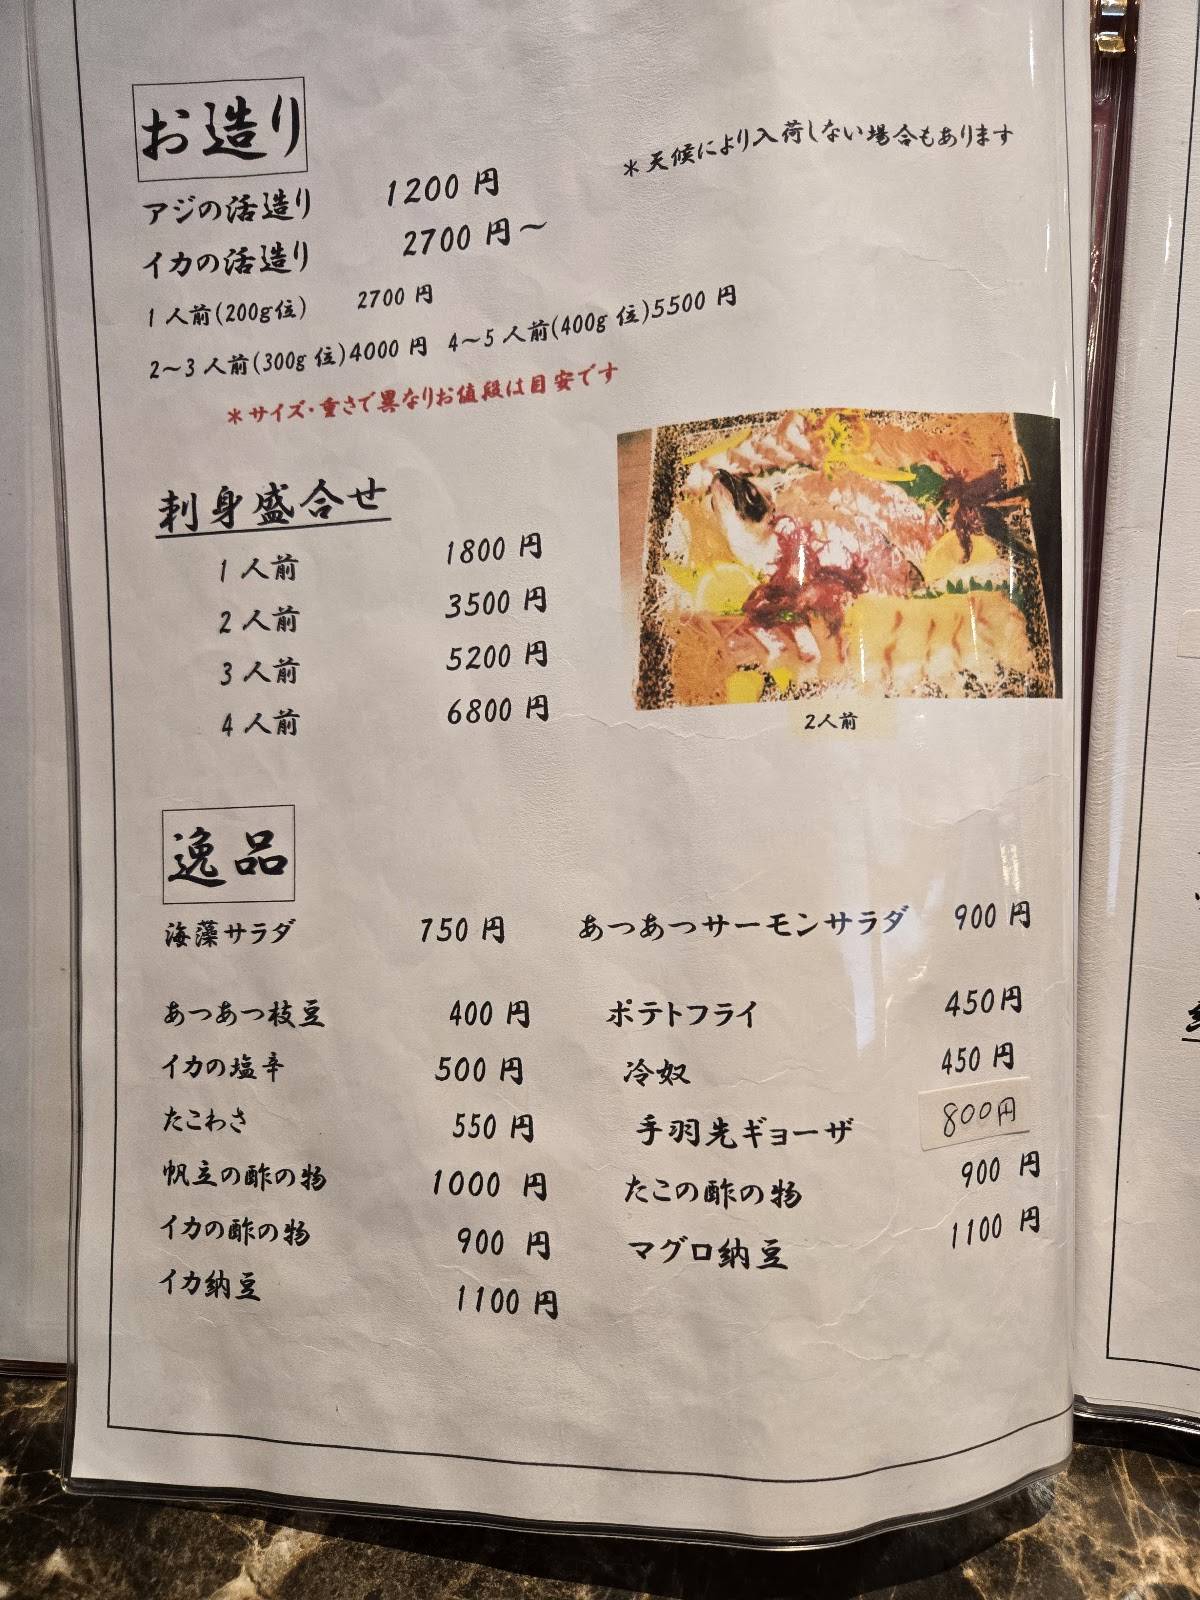 お造り
＊天候により入荷しない場合もあります
アジの活造り 1200 円
イカの活造り 2700 円～
1 人前(200g位) 2700 円
2～3 人前(300g 位)4000 円 4～5 人前(400g 位)5500 円
＊サイズ・重さで異なりお値段は目安です
刺身盛合せ
1 人前 1800 円
2 人前 3500 円
3 人前 5200 円
4 人前 6800 円
2人前
逸品
海藻サラダ 750 円 あつあつサーモンサラダ 900 円
あつあつ枝豆 400 円 ポテトフライ 450円
イカの塩辛 500 円 冷奴 450 円
たこわさ 550 円 手羽先ギョーザ 800円
帆立の酢の物 1000 円 たこの酢の物 900 円
イカの酢の物 900 円 マグロ納豆 1100 円
イカ納豆 1100 円